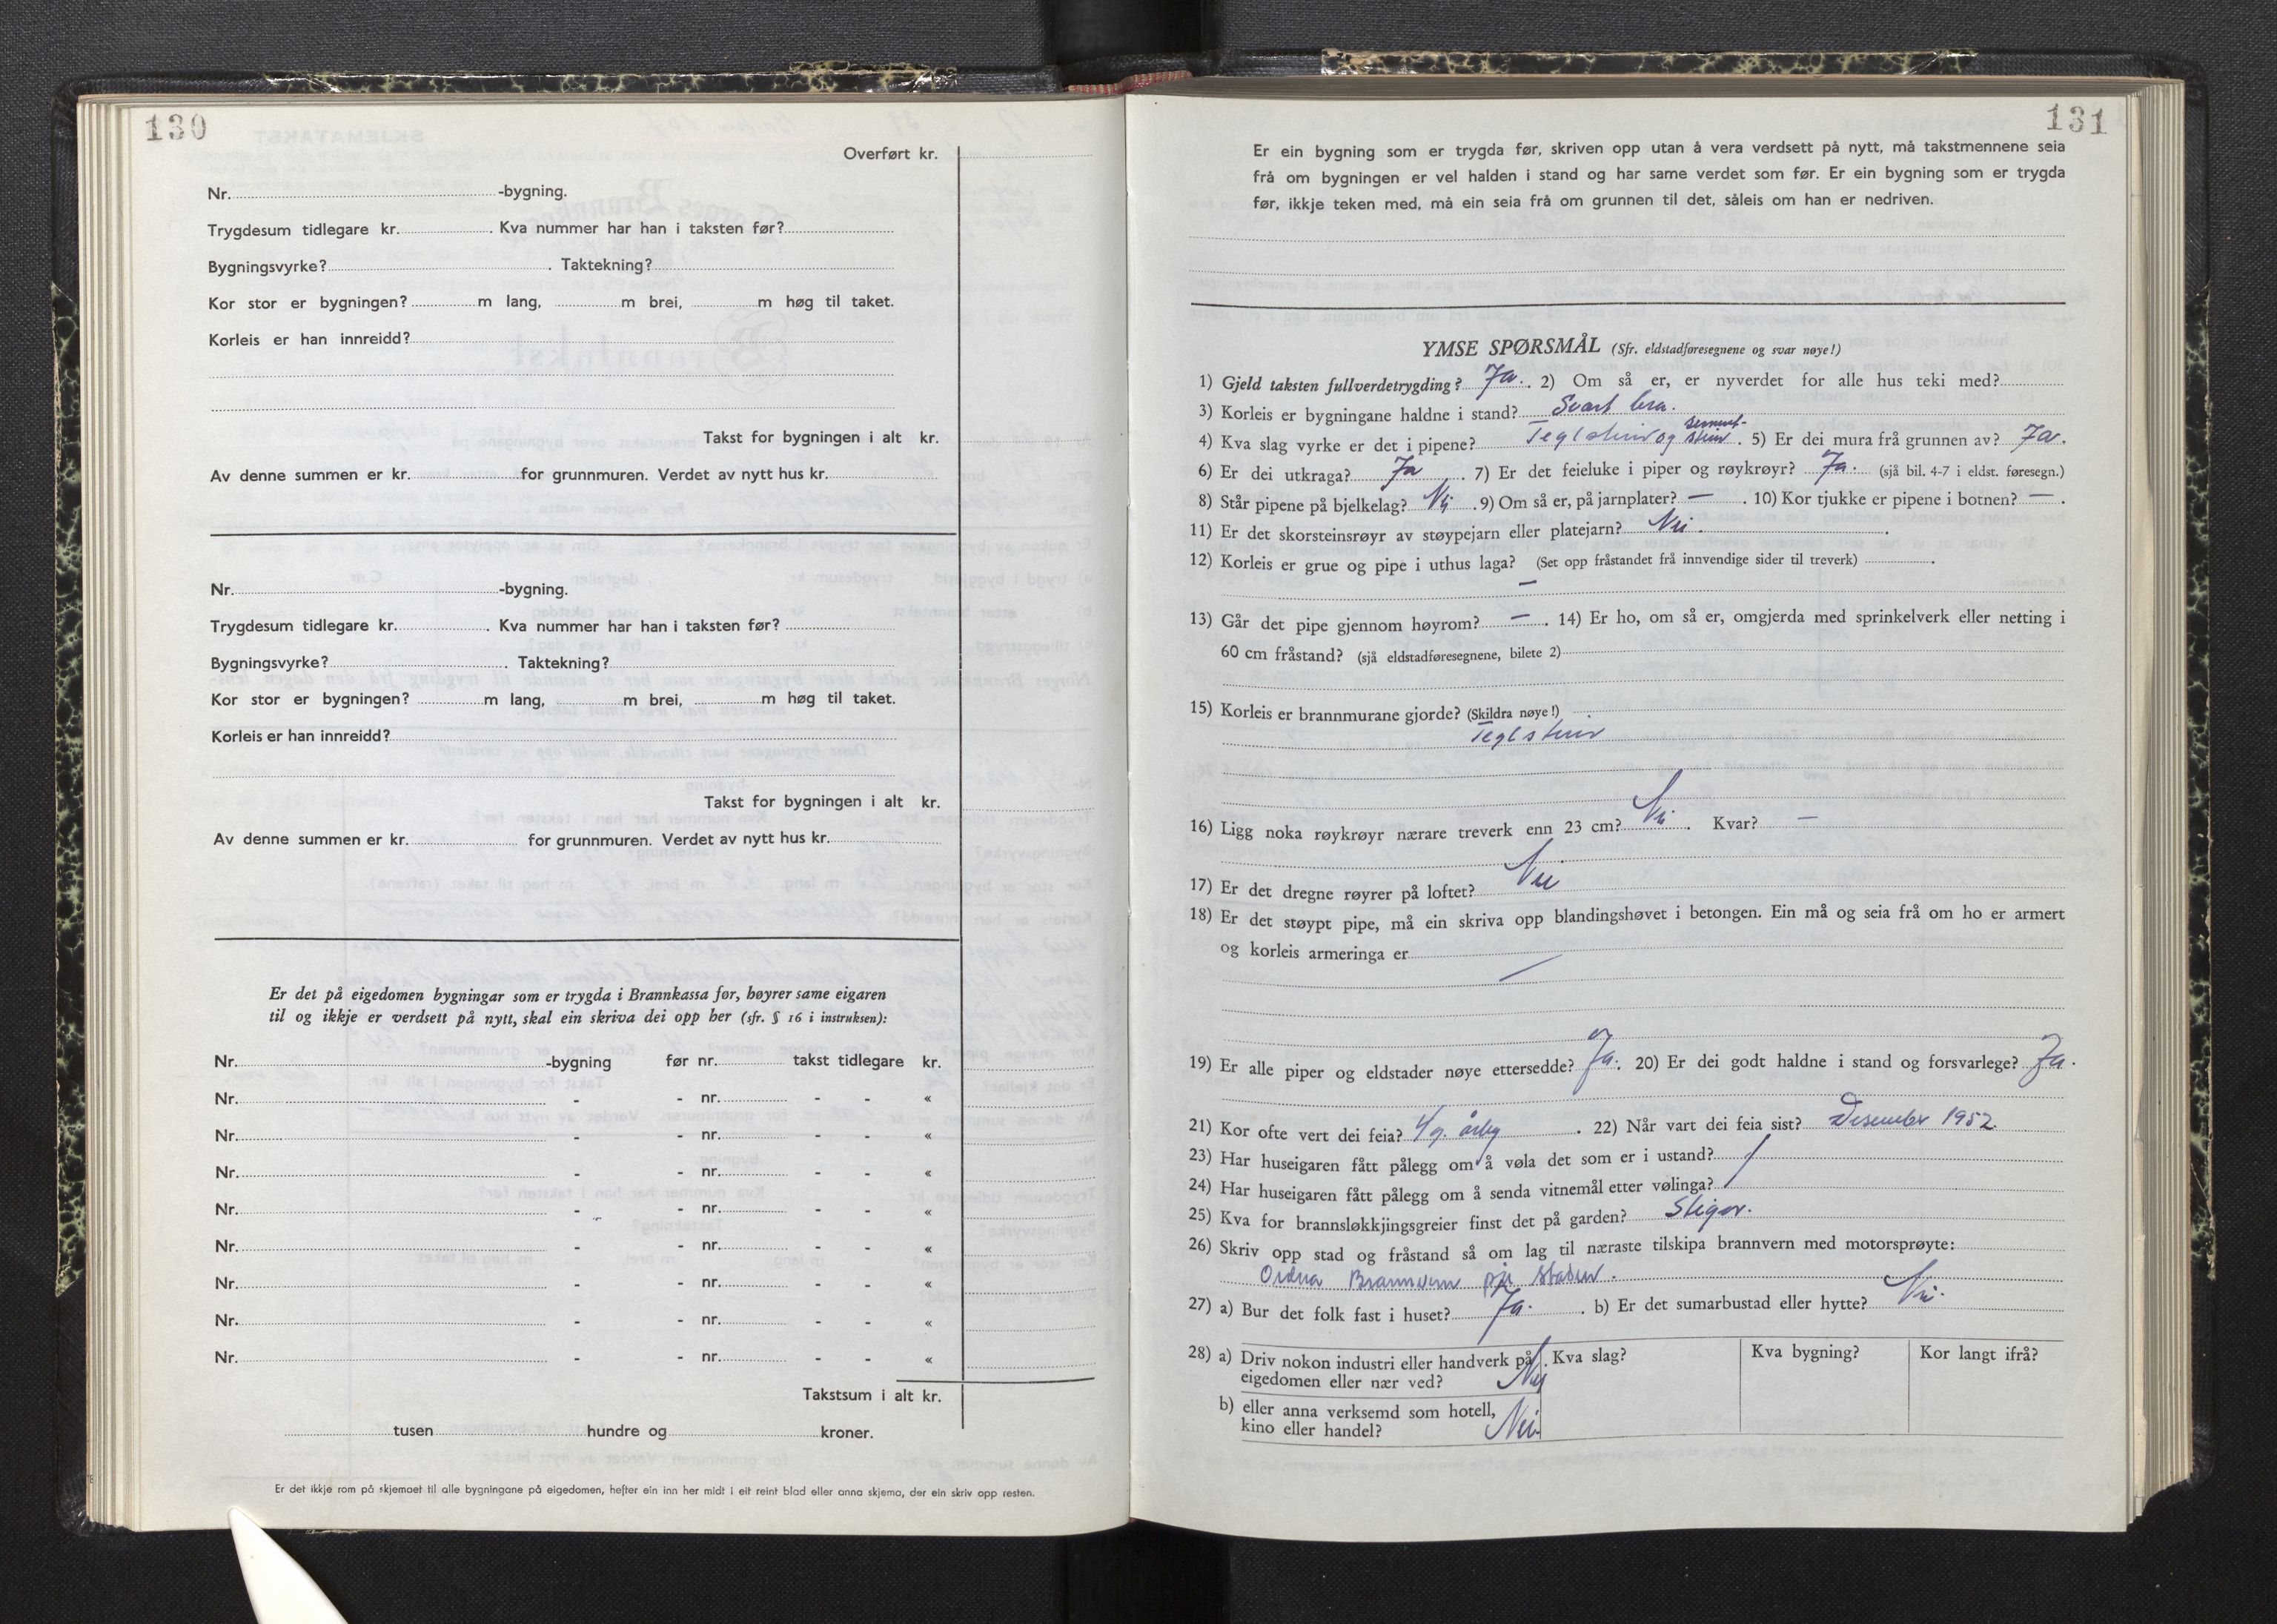 130
Overført kr.
Nr. -bygning.
Trygdesum tidlegare kr. . Kva nummer har han i taksten før?
Bygningsvyrke? . Taktekning?
Kor stor er bygningen? m lang, m brei, m høg til taket.
Korleis er han innreidd?
Takst for bygningen i alt kr.
Av denne summen er kr. for grunnmuren. Verdet av nytt hus kr.
Nr. -bygning.
Trygdesum tidlegare kr. . Kva nummer har han i taksten før?
Bygningsvyrke? . Taktekning?
Kor stor er bygningen? m lang, m brei, m høg til taket.
Korleis er han innreidd?
Takst for bygningen i alt kr.
Av denne summen er kr. for grunnmuren. Verdet av nytt hus kr.
Er det på eigedomen bygningar som er trygda i Brannkassa før, høyrer same eigaren
til og ikkje er verdsett på nytt, skal ein skriva dei opp her (sfr. § 16 i instruksen):
Nr. -bygning før nr. takst tidlegare kr.
Nr. - - nr. - - «
Nr. - - nr. - - «
Nr. - - nr. - - «
Nr. - - nr. - - «
Nr. - - nr. - - «
Nr. - - nr. - - «
Nr. - - nr. - - «
Nr. - - nr. - - «
Takstsum i alt kr.
tusen hundre og kroner.
Er det ikkje rom på skjemaet til alle bygningane på eigedomen, hefter ein inn her midt i eit reint blad eller anna skjema, der ein skriv opp resten.
131
Er ein bygning som er trygda før, skriven opp utan å vera verdsett på nytt, må takstmennene seia
frå om bygningen er vel halden i stand og har same verdet som før. Er ein bygning som er trygda
før, ikkje teken med, må ein seia frå om grunnen til det, såleis om han er nedriven.
YMSE SPØRSMÅL (Sfr. eldstadføresegnene og svar nøye!)
1) Gjeld taksten fullverdetrygding? Ja. . 2) Om så er, er nyverdet for alle hus teki med?
3) Korleis er bygningane haldne i stand? Svært bra.
4) Kva slag vyrke er det i pipene? Teglstein og sement-stein . 5) Er dei mura frå grunnen av? Ja.
6) Er dei utkraga? Ja . 7) Er det feieluke i piper og røykrøyr? Ja. (sjå bil. 4-7 i eldst. føresegn.)
8) Står pipene på bjelkelag? Nei . 9) Om så er, på jarnplater? — . 10) Kor tjukke er pipene i botnen? — .
11) Er det skorsteinsrøyr av støypejarn eller platejarn? Nei .
12) Korleis er grue og pipe i uthus laga? (Set opp fråstandet frå innvendige sider til treverk) .
—
13) Går det pipe gjennom høyrom? — . 14) Er ho, om så er, omgjerda med sprinkelverk eller netting i
60 cm fråstand? (sjå eldstadføresegnene, bilete 2)
15) Korleis er brannmurane gjorde? (Skildra nøye!)
Teglstein
16) Ligg noka røykrøyr nærare treverk enn 23 cm? Nei . Kvar? —
17) Er det dregne røyrer på loftet? Nei
18) Er det støypt pipe, må ein skriva opp blandingshøvet i betongen. Ein må og seia frå om ho er armert
og korleis armeringa er
—
19) Er alle piper og eldstader nøye ettersedde? Ja. 20) Er dei godt haldne i stand og forsvarlege? Ja.
21) Kor ofte vert dei feia? 4 g. årleg . 22) Når vart dei feia sist? Desember 1952.
23) Har huseigaren fått pålegg om å vøla det som er i ustand? /
24) Har huseigaren fått pålegg om å senda vitnemål etter vølinga?
25) Kva for brannsløkkjingsgreier finst det på garden? Stigar.
26) Skriv opp stad og fråstand så om lag til næraste tilskipa brannvern med motorsprøyte:
Ordna Brannvern på staden.
27) a) Bur det folk fast i huset? Ja. . b) Er det sumarbustad eller hytte? Nei.
28) a) Driv nokon industri eller handverk på Kva slag? Kva bygning? Kor langt ifrå?
eigedomen eller nær ved? Nei
b) eller anna verksemd som hotell,
kino eller handel? Nei.